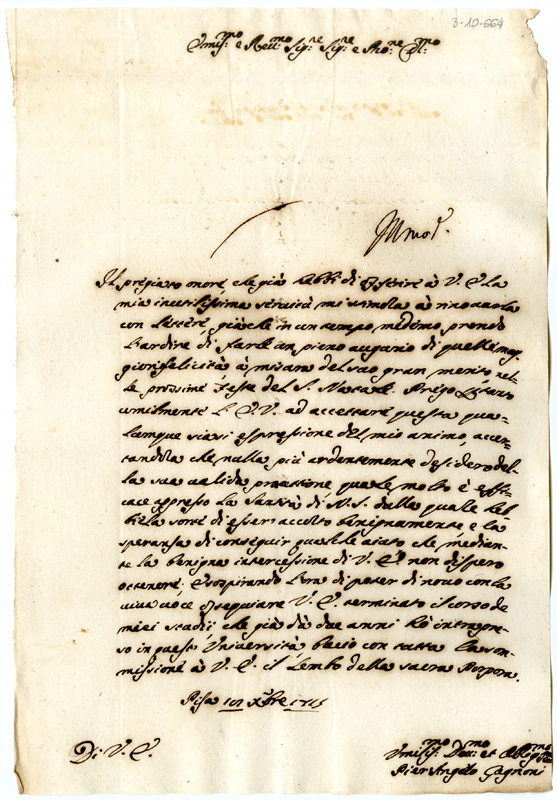 3-10-664
Em.mo e Rev.mo Sig.re Sig.re e Pro.ne Col.mo
Il pregiato onore, che già hebbi di offerire à V. E. la
mia inutilissima servitù mi stimola à rinovarla
con lettere, giàche in un tempo medemo prendo
l'ardire di farle un pieno augurio di quelle mag-
giori felicità à misura del suo gran merito nel-
le prossime feste del S. Natale. Prego
umilmente l'E.V. ad accettare questa qua-
lunque siasi espressione del mio animo, accer-
tandola che nulla più ardentemente desidero del-
la sua valida protettione quale molto è effi-
cace appresso la Santità di N.S. dalla quale heb-
bi la sorte di esser accolto benignamente e la
speranza di conseguir qualche aiuto che median-
te la benigna intercessione di V. E. non dispero
ottenere, e sospirando l'ora di poter di nuovo con la
viva voce ossequiare V. E. terminato il corso de
miei studij che già dà due anni hò intrapre-
so in questa Università bacio con tutta la som-
missione à V. E. il lembo della sacra Porpora.
Pisa Xbre
Di V. E.
Umiliss.mo Dev.mo et Obblig.mo
Pier Angelo Gagnoni